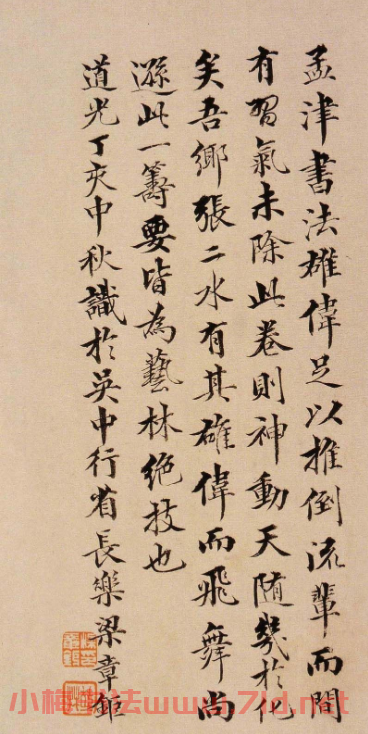 孟津書法雄偉足以推倒流輩而間
有習氣未除此卷則神動天随幾於化
矣吾鄉張二水有其雄偉而飛舞尚
遜此一籌要皆為藝林绝技也
道光丁亥中秋識於吳中行省長樂梁章鉅
小梅书法www.7ld.net